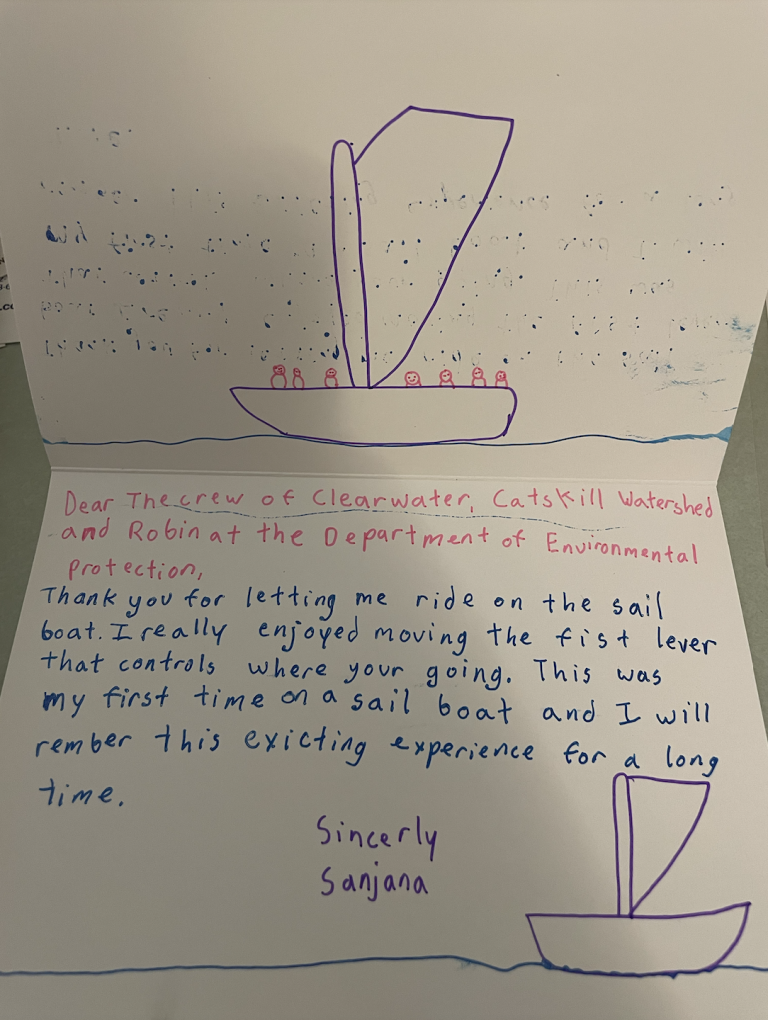 Dear The crew of Clearwater, Catskill Watershed
and Robin at the Department of Environmental
protection,
Thank you for letting me ride on the sail
boat. I really enjoyed moving the fist lever
that controls where your going. This was
my first time on a sail boat and I will
rember this exicting experience for a long
time.
Sincerly
Sanjana